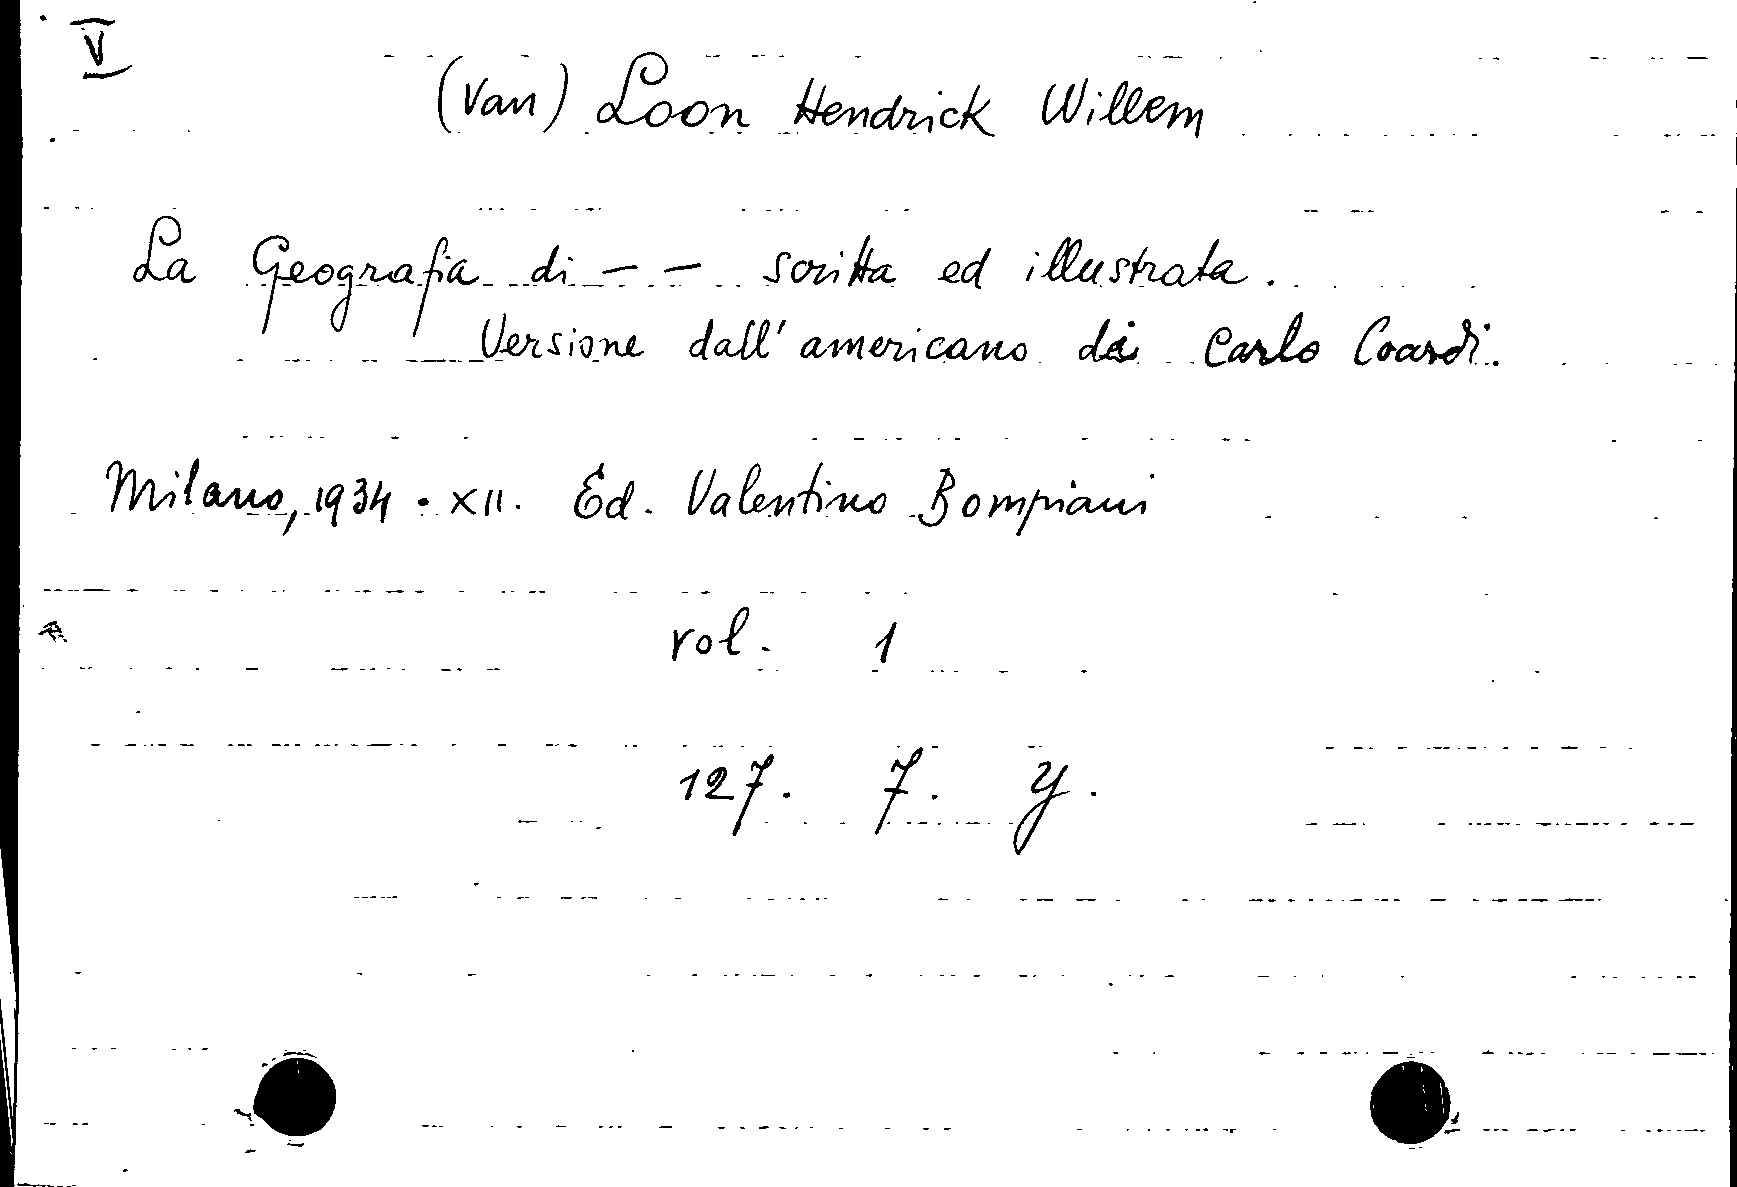 V
(Van) Loon Hendrick Willem
La Geografia di – – scritta ed illustrata.
Versione dall' americano di Carlo Coardi.
Milano, 1934 · XII. Ed. Valentino Bompiani
vol. 1
127. 7. Y.